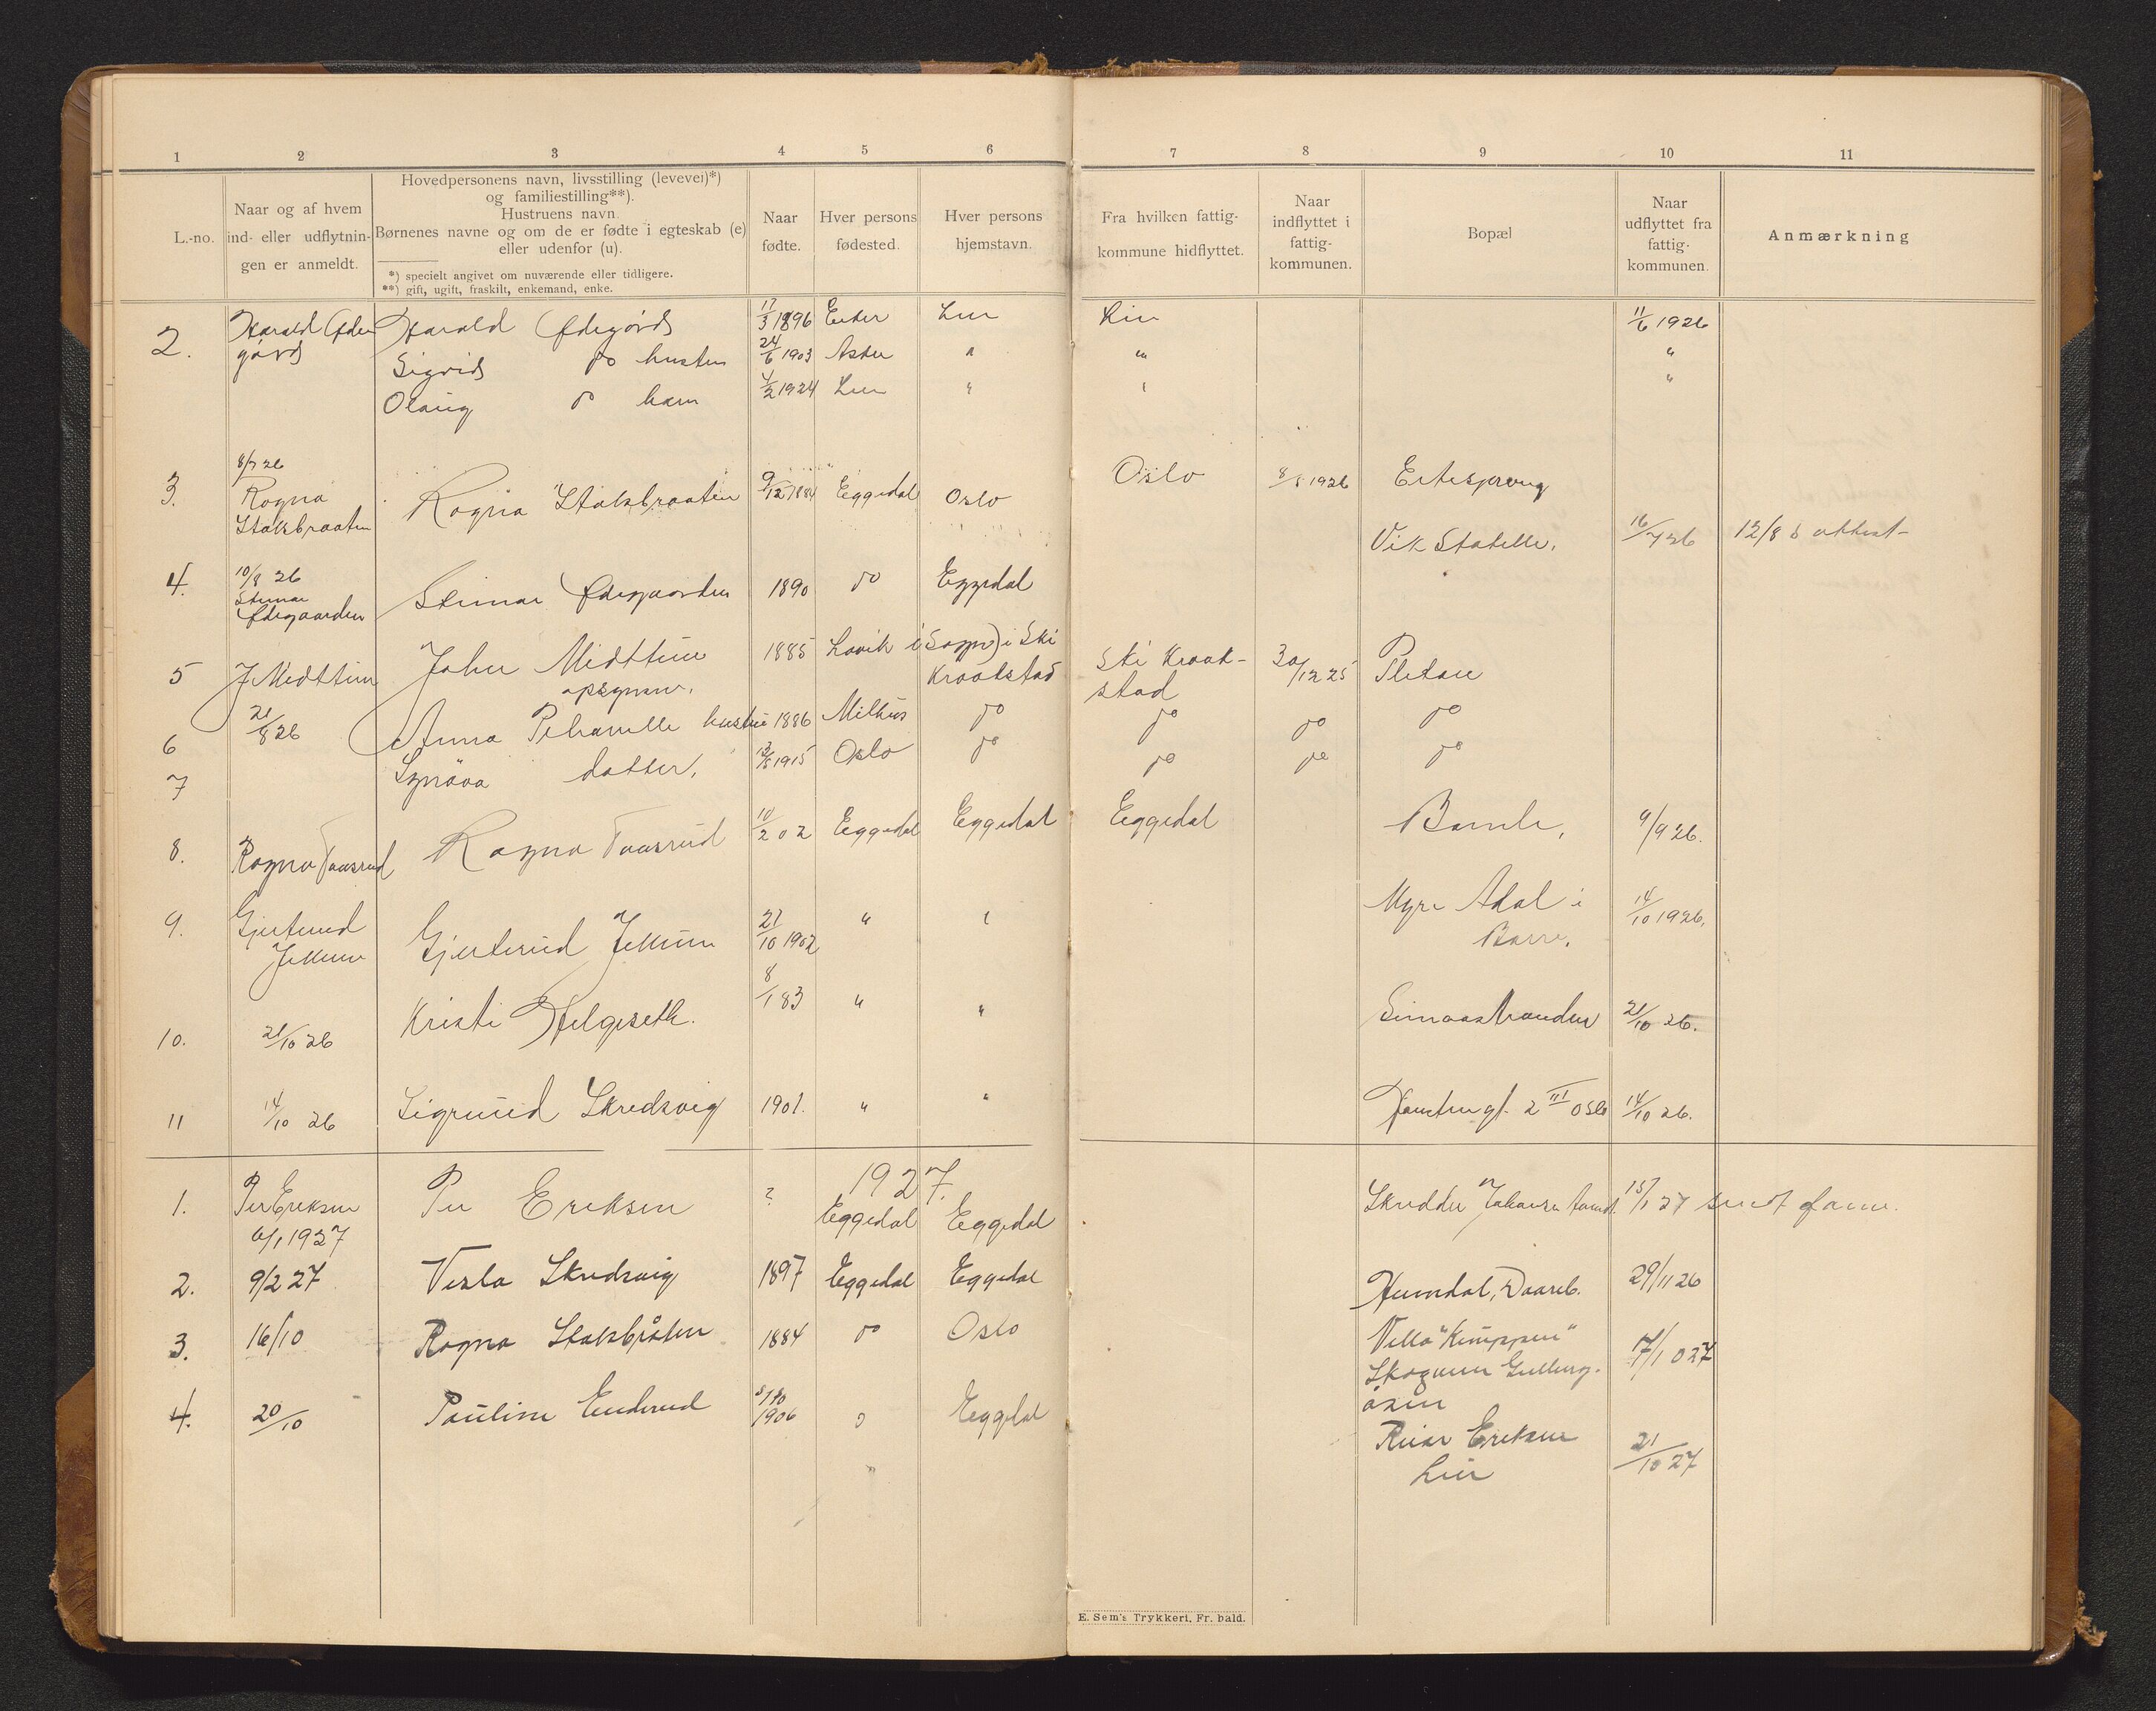 1 2 3 4 5 6 7 8 9 10 11
L.-no.
Naar og af hvem
ind- eller udflytnin-
gen er anmeldt.
Hovedpersonens navn, livsstilling (levevei)*)
og familiestilling**).
Hustruens navn.
Børnenes navne og om de er fødte i egteskab (e)
eller udenfor (u).
*) specielt angivet om nuværende eller tidligere.
**) gift, ugift, fraskilt, enkemand, enke.
Naar
fødte.
Hver persons
fødested.
Hver persons
hjemstavn.
Fra hvilken fattig-
kommune hidflyttet.
Naar
indflyttet i
fattig-
kommunen.
Bopæl
Naar
udflyttet fra
fattig-
kommunen.
Anmærkning
2. Harald Øde Harald Ødegård 17/3 1896 Lier Lier 11/6 1926
gård Sigrid do hustru 24/6 1903 Asker " " "
Olaug do barn 4/2 1924 Lier " " "
8/7 26
3. Ragna Ragna Staksbraaten 9/12 1884 Eggedal Oslo Oslo 8/8 1926 Ertesprang
Staksbraaten Vik Statelle. 16/7 26 12/8 s attest
4. 10/8 26 Steinar Ødegaarden 1890 do Eggedal
Steinar
Ødegaarden
5 J Midttun John Midttun 1885 Lavik i Sogn) i Ski Ski Kraak- 30/12 25 Pletan
opsynsm. Kraakstad stad
6 21/8 26 Anna Petranelle hustru 1886 Melhus do do do do
7 Synöva datter. 1915 Oslo do do do do
8. Ragna Taasrud Ragna Taasrud 10/2 02 Eggedal Eggedal Eggedal Bamle, 9/9 26.
9. Gjertrud Gjertrud Jellum 27/10 1902 " " Myre Adal i 14/10 1926.
Jellum Barre.
10. 21/10 26 Kristi Helgeseth. 8/1 83 " " Simoastranden 21/10 26.
11 14/10 26 Sigrund Skredsvig 1901. " " 2 III Oslo 14/10 26.
1927.
1. Per Eriksen Per Eriksen ? Eggedal Eggedal Skredder Johansen 15/1 27
6/1 1927
2. 9/2 27 Vesla Skredsvig 1897 Eggedal Eggedal Humdal, Daareb. 29/11 26
3. 16/10 Ragna Staksbråten 1884 do Oslo Villa "Kneippen" 17/10 27
Skogveien Gulleng-
åsen
4. 20/10 Pauline Enderud 1906 Eggedal Reier Eriksen 21/10 27
Lier
E. Sem's Trykkeri, Fr. hald.